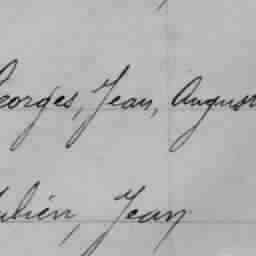 Georges, Jean, August
Julien, Jean